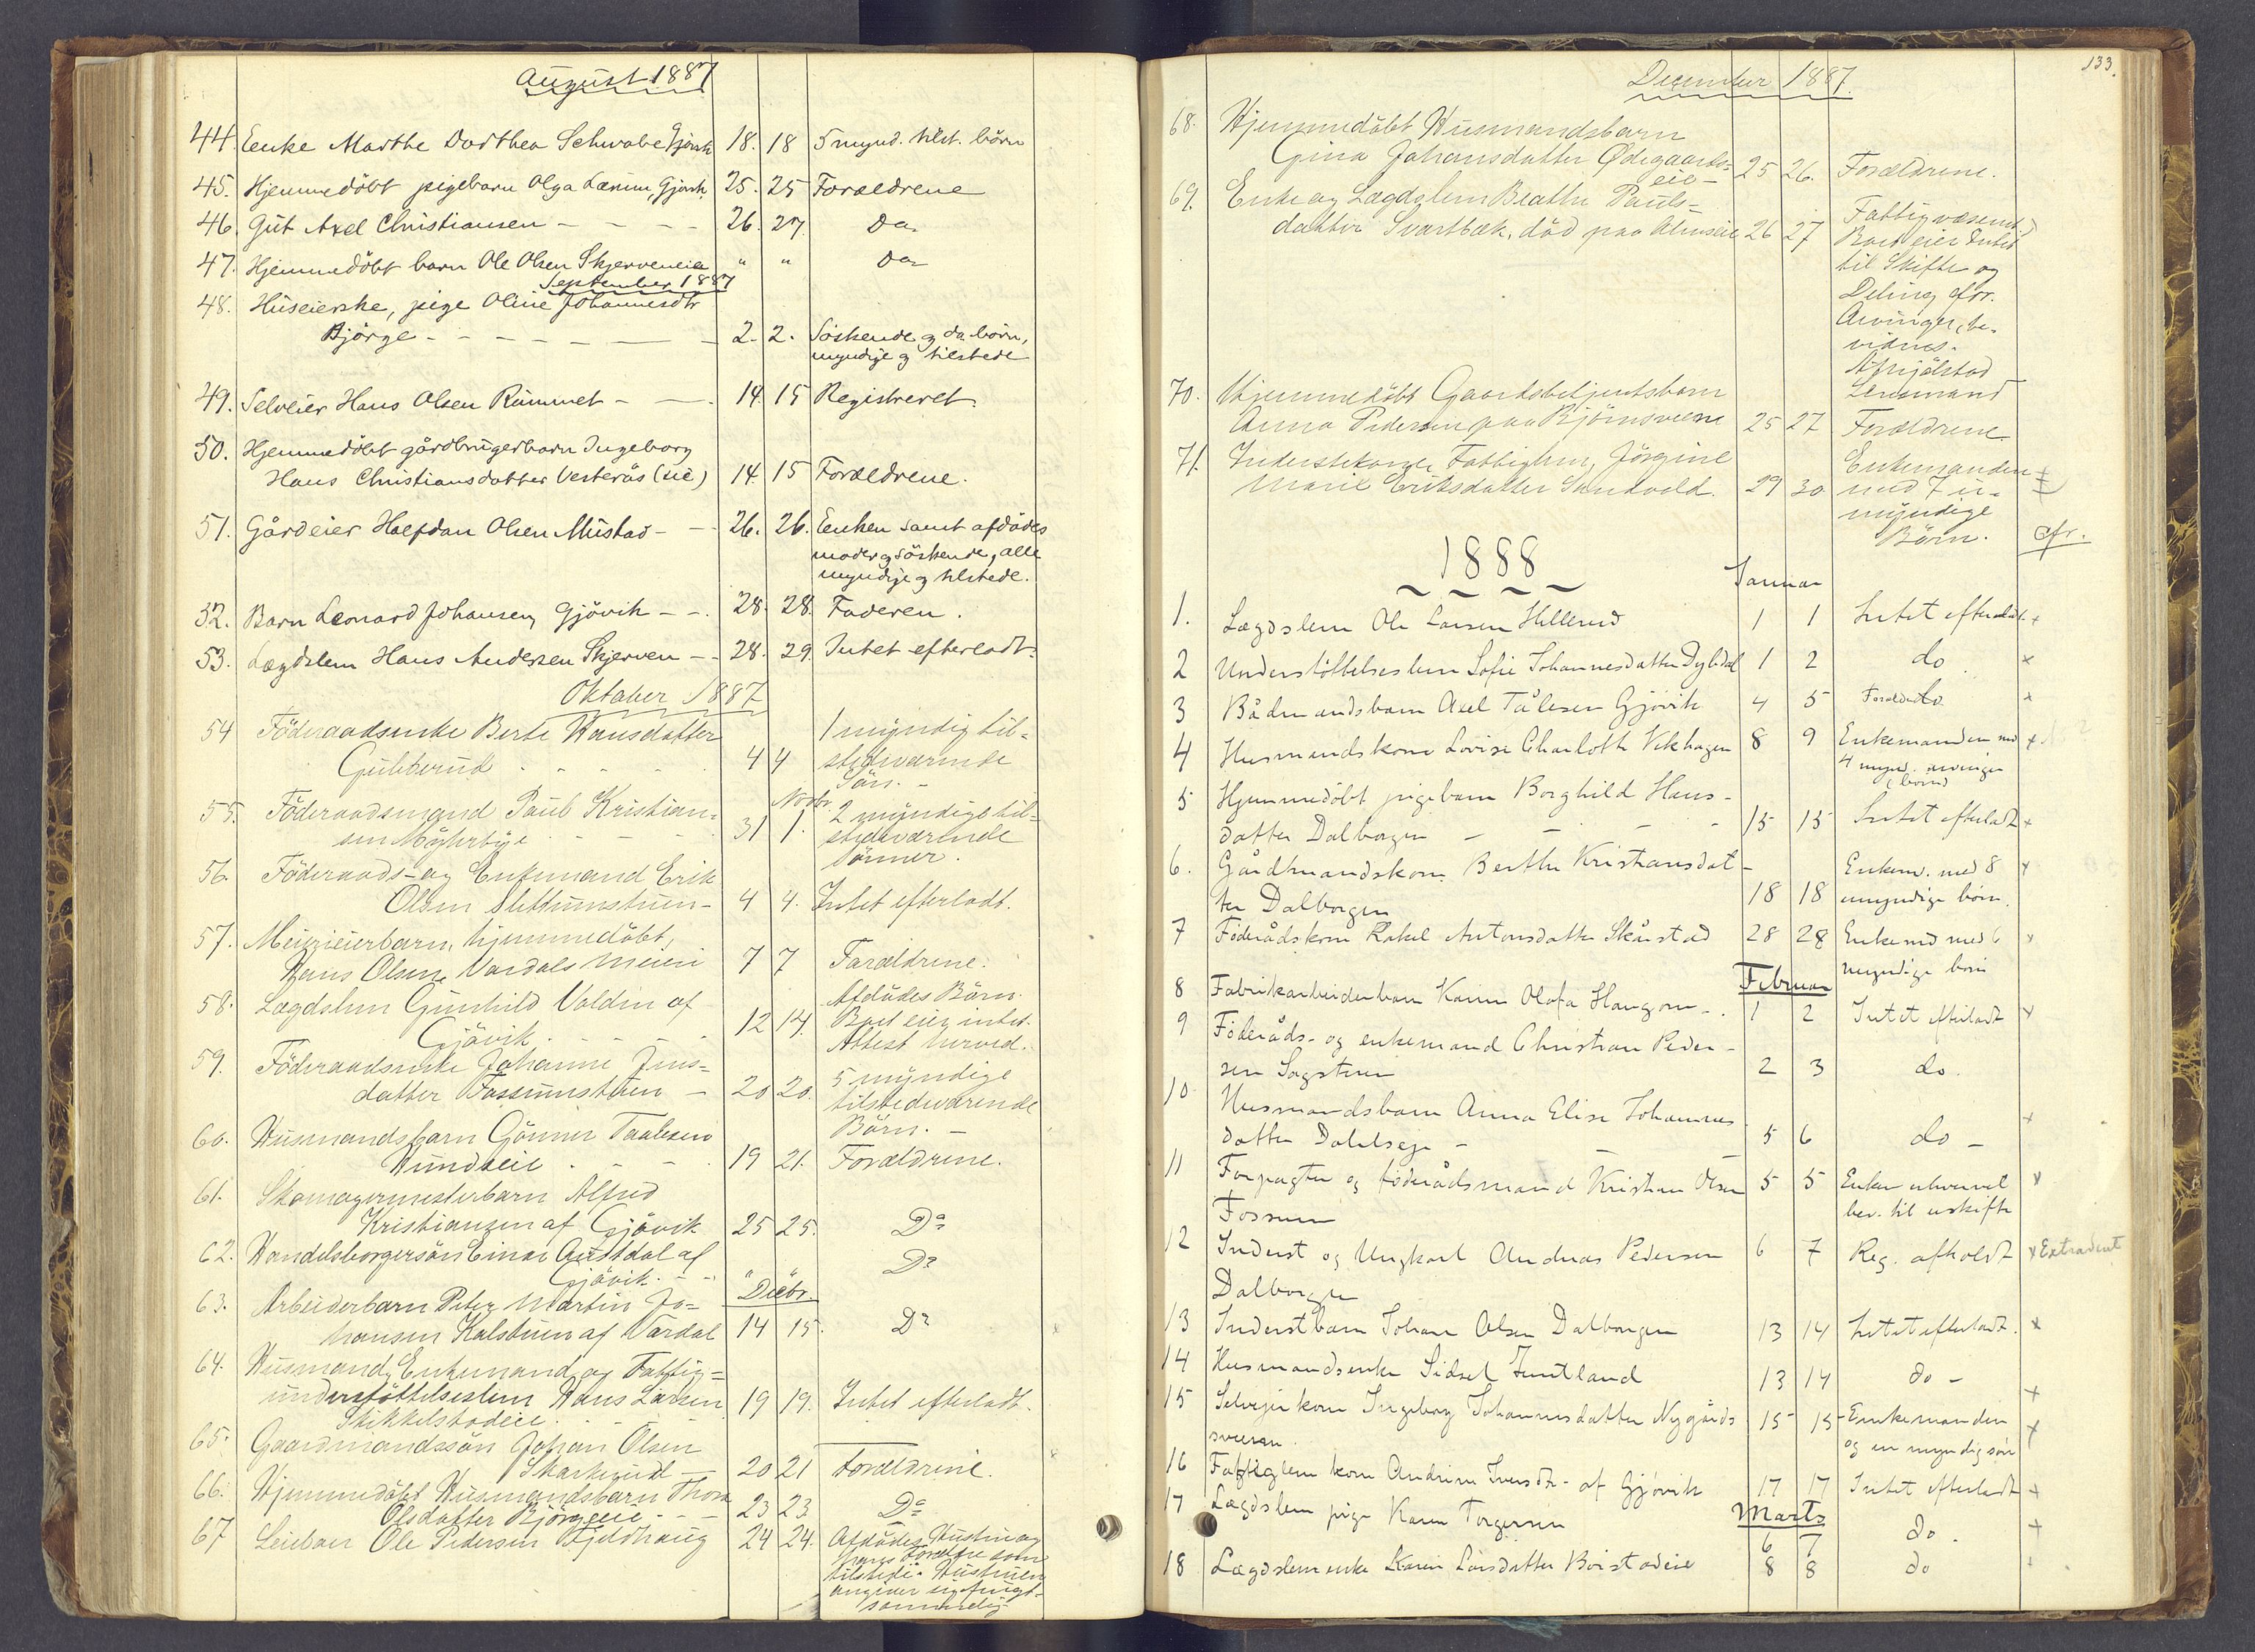 August 1887
44. Eenke Marthe Dorthea Schwabe Gjövik 18. 18 5 mynd. tilst. börn
45. Hjemmedöbt pigebarn Olga Lænum, Gjövik. 25. 25 Forældrene
46. Gut Axel Christiansen - - - - 26. 27. Do
47. Hjemmedöbt barn Ole Olsen Skjerveneie " " Do
September 1887
48. Huseierske, pige Oline Johannesdtr
Bjørge - - - - - - 2. 2. Söskende og do börn,
myndige og tilstede
49. Selveier Hans Olsen Rammet - - 14. 15 Registreret.
50. Hjemmedöbt gårdbrugerbarn Ingeborg
Hans Christiansdatter Vesterås (eie) 14. 15 Forældrene.
51. Gårdeier Halfdan Olsen Mustad - - 26. 26. Eenken samt afdödes
moder og söskende, alle
myndige og tilstede.
52. Barn Leonard Johansen, Gjövik - - 28. 28. Faderen.
53. Lægdslem Hans Andersen Skjerven - - 28. 29. Intet efterladt.
Oktober 1887
54 Föderaadsenke Berte Hansdatter 1 myndig til-
Gulterud 4 4 stedværende
Sön. -
55. Föderaadsmand Paul Kristian- Novbr. 2 myndige til-
sen Möllerbye 31 1. stedværende
Sönner.
56. Föderaads- og Enkemand Erik
Olsen Slettumstuen - 4 4. Intet efterladt.
57. Meierieierbarn, hjemmedöbt,
Hans Olsen Vardals Meieri 7 7 Forældrene.
58. Lægdslem Gunhild Valdin af Afdödes Börn.
Gjövik. 12 14. Boet eier intet.
Attest herved.
59. Föderaadsenke Johanne Jens- 5 myndige
datter Fossumstuen - 20 20. tilstedværende
Börn. -
60. Husmandsbarn Gunner Paulsen
Hundseie 19 21. Forældrene.
61. Skomagermesterbarn Alfred
Kristiansen af Gjövik 25 25. Do
62. Handelsborgersön Einar Austdal af Do
Gjövik. - - " "
Decbr.
63. Arbeiderbarn Peter Martin Jo-
hansen Kalstuen af Vardal 14 15. Do
64. Husmand, Enkemand og Fattig-
understöttelseslem Hans Larsen 19 19. Intet efterladt.
Stikkelstadeie.
65. Gaardmandssön Johan Olsen
Skarterud 20 21 Forældrene.
66. Hjemmedöbt Husmandsbarn Thora
Olsdatter Bjørgeeie - - 23 23 Do
67 Leieboer Ole Pedersen Fjeldhaug 24 24. Afdödes Hustru og
hans Forældre som
tilstede. Hustruen
angiver sig frugt-
sommelig
133.
December 1887.
68. Hjemmedöbt Husmandsbarn
Gina Johansdatter Ødegaards-
eie - 25 26. Forældrene.
69. Enke og Lægdslem Beathe Pauls-
datter Svartbæk, död paa Alunseie 26 27 Fattigvæsenet.
Boet eier Intet
til Skifte og
Deling efr.
Arvinger, be-
vidnes.
Lensmand
70. Hjemmedöbt Gaardsbetjentsbarn
Anna Pedersen paa Bjørnsveen 25 27 Forældrene
71. Inderstekone, Fattiglem, Jörgine
Marie Eriksdatter Sandvold. 29 30 Enkemanden
med 7 u-
myndige
Börn. cfr.
1888
Januar
1. Lægdslem Ole Larsen Hillerud 1 1 Intet efterladt. x
2 Understöttelseslem Sofie Johannesdatter Dybdal 1 2 do x
3 Bådmandsbarn Axel Tålesen Gjövik 4 5 Forældre x
4 Husmandskone Lovise Charlotte Vikhagen 8 9 Enkemanden med x
4 mynd. arvinger
(börn)
5 Hjemmedöbt pigebarn Borghild Hans-
datter Dalborgen - - - 15 15 Intet efterladt x
6. Gårdmandskone Berthe Kristiansdat-
ter Dalborgen 18 18 Enkem. med 8 x
umyndige börn.
7 Föderådskone Rakel Antonsdatter Skårstad 28 28 Enkemd med 6 x
myndige börn
Februar
8 Fabrikarbeiderbarn Karen Olafa Haugom - 1 2 Intet efterladt x
9 Föderåds- og enkemand Christian Peder-
sen Sagstuen 2 3 do.
10 Husmandsbarn Anna Elise Johannes
datter Dahlseje - 5 6 do - x
11 Forpagter og föderådsmand Kristian Olsen 5 5 Enken erhvervet x
Fossum bev. til uskifte
12 Inderst og Ungkarl Andreas Pedersen 6 7 Reg. afholdt x Extraderet
Dalborgen
13 Inderstbarn Johan Olsen Dalborgen 13 14 Intet efterladt. x
14 Husmandsenke Sidsel Jutland 13 14 do - x
15 Selveierkone Ingeborg Johannesdatter Nygårds 15 15 Enkemanden x
sveen. og en myndig sön
16 Fattiglem kone Andrine Iversdtr - af Gjövik 17 17 Intet efterladt x
Marts
17 Lægdslem pige Karen Torgersen 6 7 do. x
18 Lægdslem enke Karen Larsdatter Börstadeie 8 8 do